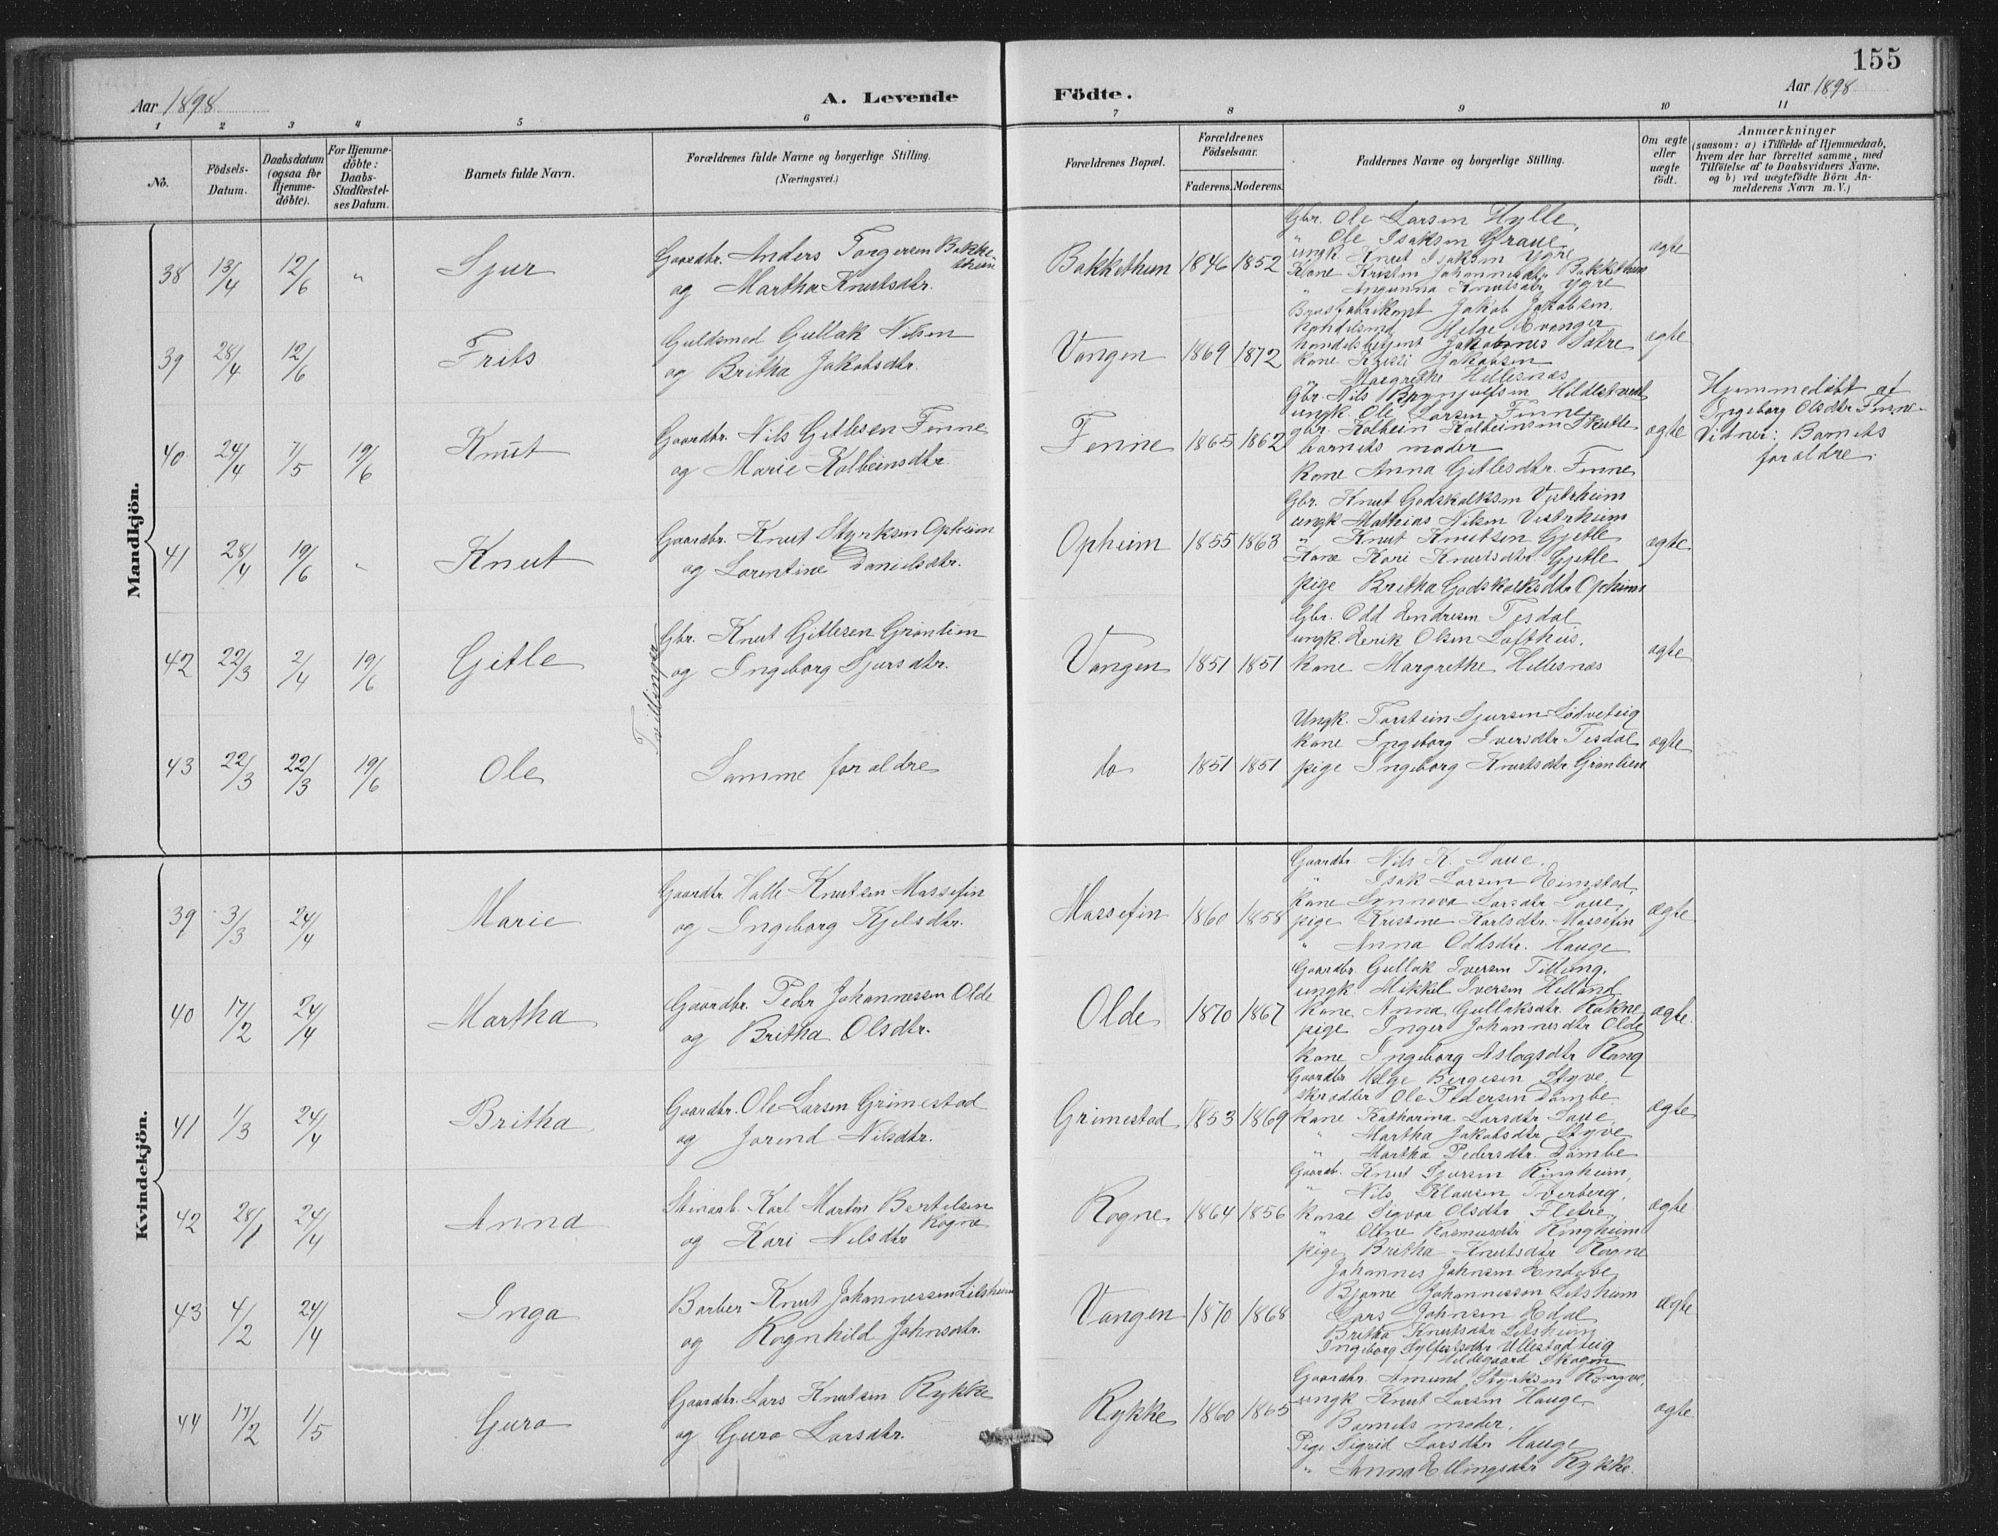 155
Aar 1898
A. Levende
Födte.
Aar 1898
1 2 3 4 5 6 7 8 9 10 11
No.
Födsels-Datum.
Daabsdatum (ogsaa for Hjemme-döbte).
For Hjemme-döbte: Daabs-Stadfæstel-ses Datum.
Barnets fulde Navn.
Forældrenes fulde Navne og borgerlige Stilling.
(Næringsvei.)
Forældrenes Bopæl.
Forældrenes Fødselsaar.
Faderens. Moderens.
Faddernes Navne og borgerlige Stilling.
Om ægte eller uægte födt.
Anmærkninger
(saasom: a) i Tilfælde af Hjemmedaab, hvem der har forrettet samme, med Tilföielse af to Daabsvidners Navne, og b) ved uægtefödte Börn An-melderens Navn m. V.)
Mandkjön.
38 13/4 12/6 " Sjur
Gaardbr. Anders Torgersen Bakke-
theim
og Martha Knutsdtr.
Bakkethun 1846 1852
Gbr. Ole Larsen Hylle,
" Ole Isaksen Graue
ungk. Knut Isaksen Ygre
Kone Kristin Johannesdtr Bakkethun
" Ingunna Knutsdtr Ygre
ægte
39 28/4 12/6 Frits
Guldsmed Gullak Nilsen
og Britha Jakobsdtr.
Vangen 1869 1872
Jakob Jakobsen.
Handelsmd Helge Evanger
handelsbetjent Johannes Sætre
kone Jakobsen
" Margrethe Hillesnæs
ægte
40 24/4 7/5 19/6 Knut
Gaardbr. Nils Gitlesen Finne
og Marie Kolbeinsdtr.
Finne 1865 1862
Gbr. Nils Brynjulfsen Hildestveit
ungk. Ole Larsen Finne
gbr. Kolbein Kolbeinsen Skutle
barnets moder
kone Anna Gitlesdtr. Finne
ægte
Hjemmedöbt af
Ingeborg Olsdtr Finne.
Vidner: Barnets
forældre.
41 28/4 19/6 " Knut
Gaardbr. Knut Styrksen Opheim
og Lorentine Danielsdtr.
Opheim 1855 1863
Gbr. Knut Godskalksen Vestrheim
ungk Mathias Nilsen Vestrheim
" Knut Knutsen Gjetle
Kone Kari Knutsdtr Gjetle
pige Britha Godskalksdtr Opheim
ægte
42 22/3 2/4 19/6 Gitle
Tvillinger
Gbr. Knut Gitlesen Grönlien
og Ingeborg Sjursdtr.
Vangen 1851 1851
Gbr. Odd Endresen Tesdal
ungk. Eerik Olsen Lofthus,
kone Margrethe Hillesnæs
ægte
43 22/3 22/3 19/6 Ole
Samme forældre
do 1851 1851
Ungk. Torstein Sjursen Lödveseig
kone Ingeborg Iversdtr Tesdal
pige Ingeborg Knutsdtr Grönlien
ægte
Kvindekjön.
39 3/3 24/4 Marie
Gaardbr Halle Knutsen Massefin
og Ingeborg Kjelsdtr.
Massefin 1860 1858
Gaardbr. Nils K. Saue.
" Isak Larsen Eimstad,
kone Synneva Larsdtr Saue,
pige Kristine Karlsdtr. Massefin
" Anna Oddsdtr. Hauge
ægte
40 17/2 24/4 Martha
Gaardbr. Peder Johannessen Olde
og Britha Olsdtr.
Olde 1870 1867
Gaardbr. Gullak Iversen Tillung.
ungk. Mikkel Iversen Helland
kone Anna Gullaksdtr. Rokne
pige Inger Johannesdtr Olde
kone Ingeborg Aslagsdtr Rong
ægte.
41 1/3 24/4 Britha
Gaardbr. Ole Larsen Grimestad
og Jorend Nilsdtr.
Grimestad 1853 1869
Gaardbr Helge Bergesen Styve
skrædder Ole Pedersen Dömbe
kone Katharina Larsdtr Saue,
" Martha Jakobsdtr Styve
" Martha Pedersdtr. Dömbe
ægte
42 28/1 24/4 Anna
Stenarb. Karl Martin Bertelsen
Rogne
og Kari Nilsdtr
Rogne 1864 1856
Gaardb. Knut Sjursen Ringheim,
" Nils Klausen Sverberg,
kone Sigvor Olsdtr Fletre,
" Oline Rasmusdtr Ringheim
pige Britha Knutsdtr Rogne
ægte
43 4/2 24/4 Inga
Barber Knut Johannessen Litsheim
og Rognhild Johnsdtr.
Vangen 1870 1868
Johannes Johnsen Endeve
Bjarne Johannessen Litsheim
Lars Johnsen Edal
Britha Knutsdtr Litsheim
Ingeborg Sylfestsdtr Ullestadteig
Hildegaard Skogen
ægte
44 17/2 1/5 Guro
Gaardbr. Lars Knutsen Rykke
og Guro Larsdtr.
Rykke 1860 1865
Gaardbr. Amund Styrksen Rongve,
ungk Knut Larsen Hauge
Barnets moder.
Pige Sigrid Larsdtr Hauge
" Anna Ellingsdtr Rykke.
ægte